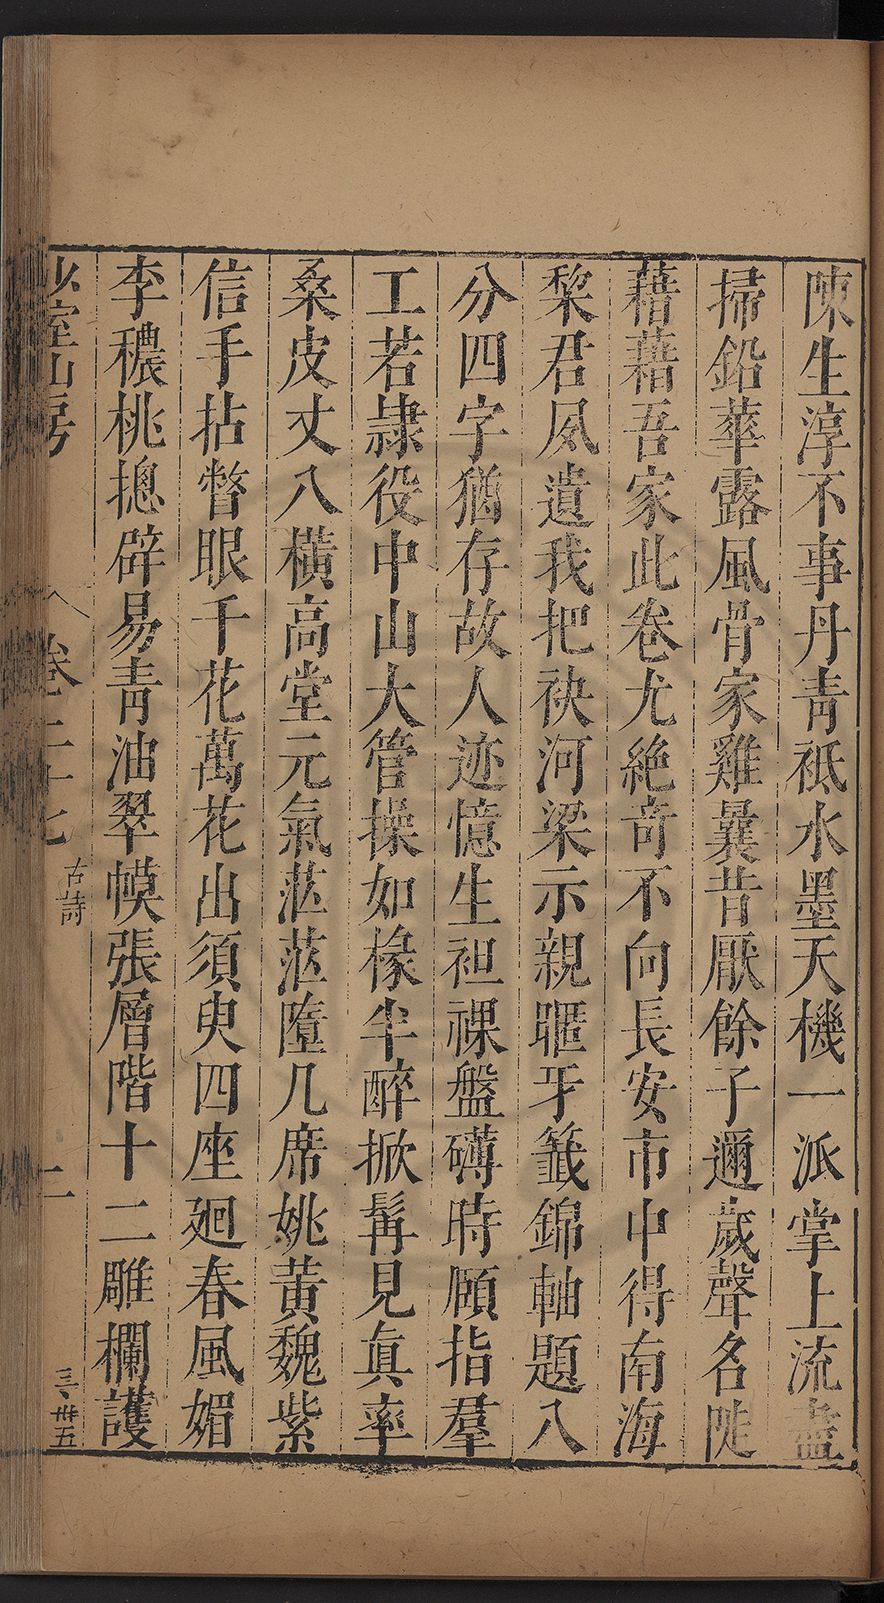 陳生淳不事丹靑祗水墨天機一派掌上流盡
掃鉛華露風骨家雞曩昔厭餘子邇歲聲名陡
藉藉吾家此卷尤絶奇不向長安市中得南海
棃君夙遺我把袂河梁示親暱牙籖錦軸題八
分四字猶存故人迹憶生袒裸盤礴時頤指羣
工若隷役中山大管操如椽半醉掀髯見眞率
桑皮丈八橫高堂元氣茫茫墮几席姚黃魏紫
信手拈瞥眼千花萬花出須臾四座廻春風媚
李穠桃摠辟易靑油翠幙張層階十二雕欄護
少室山房
卷二十七
古詩
二
三、卅五